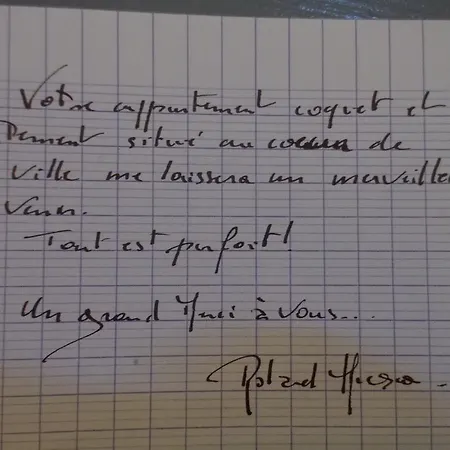 Votre appartement coquet et
situé au coeur de
ville me laissera un merveille
Tout est parfait!
Un grand Merci à vous...
Roland